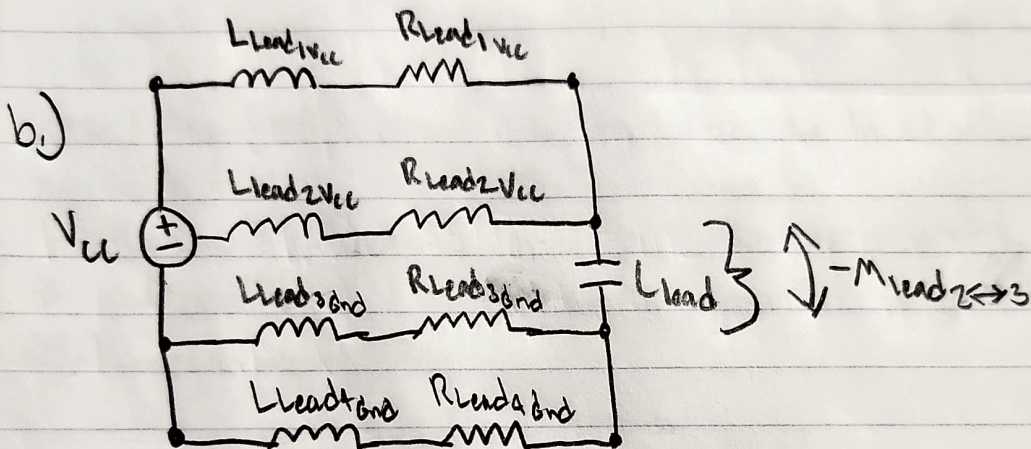 L_Lead1Vcc R_Lead1Vcc
b.)
L_Lead2Vcc R_Lead2Vcc
Vcc + -
L_Lead3Gnd R_Lead3Gnd
L_lead } ↕ -M_lead2↔3
L_Lead4Gnd R_Lead4Gnd